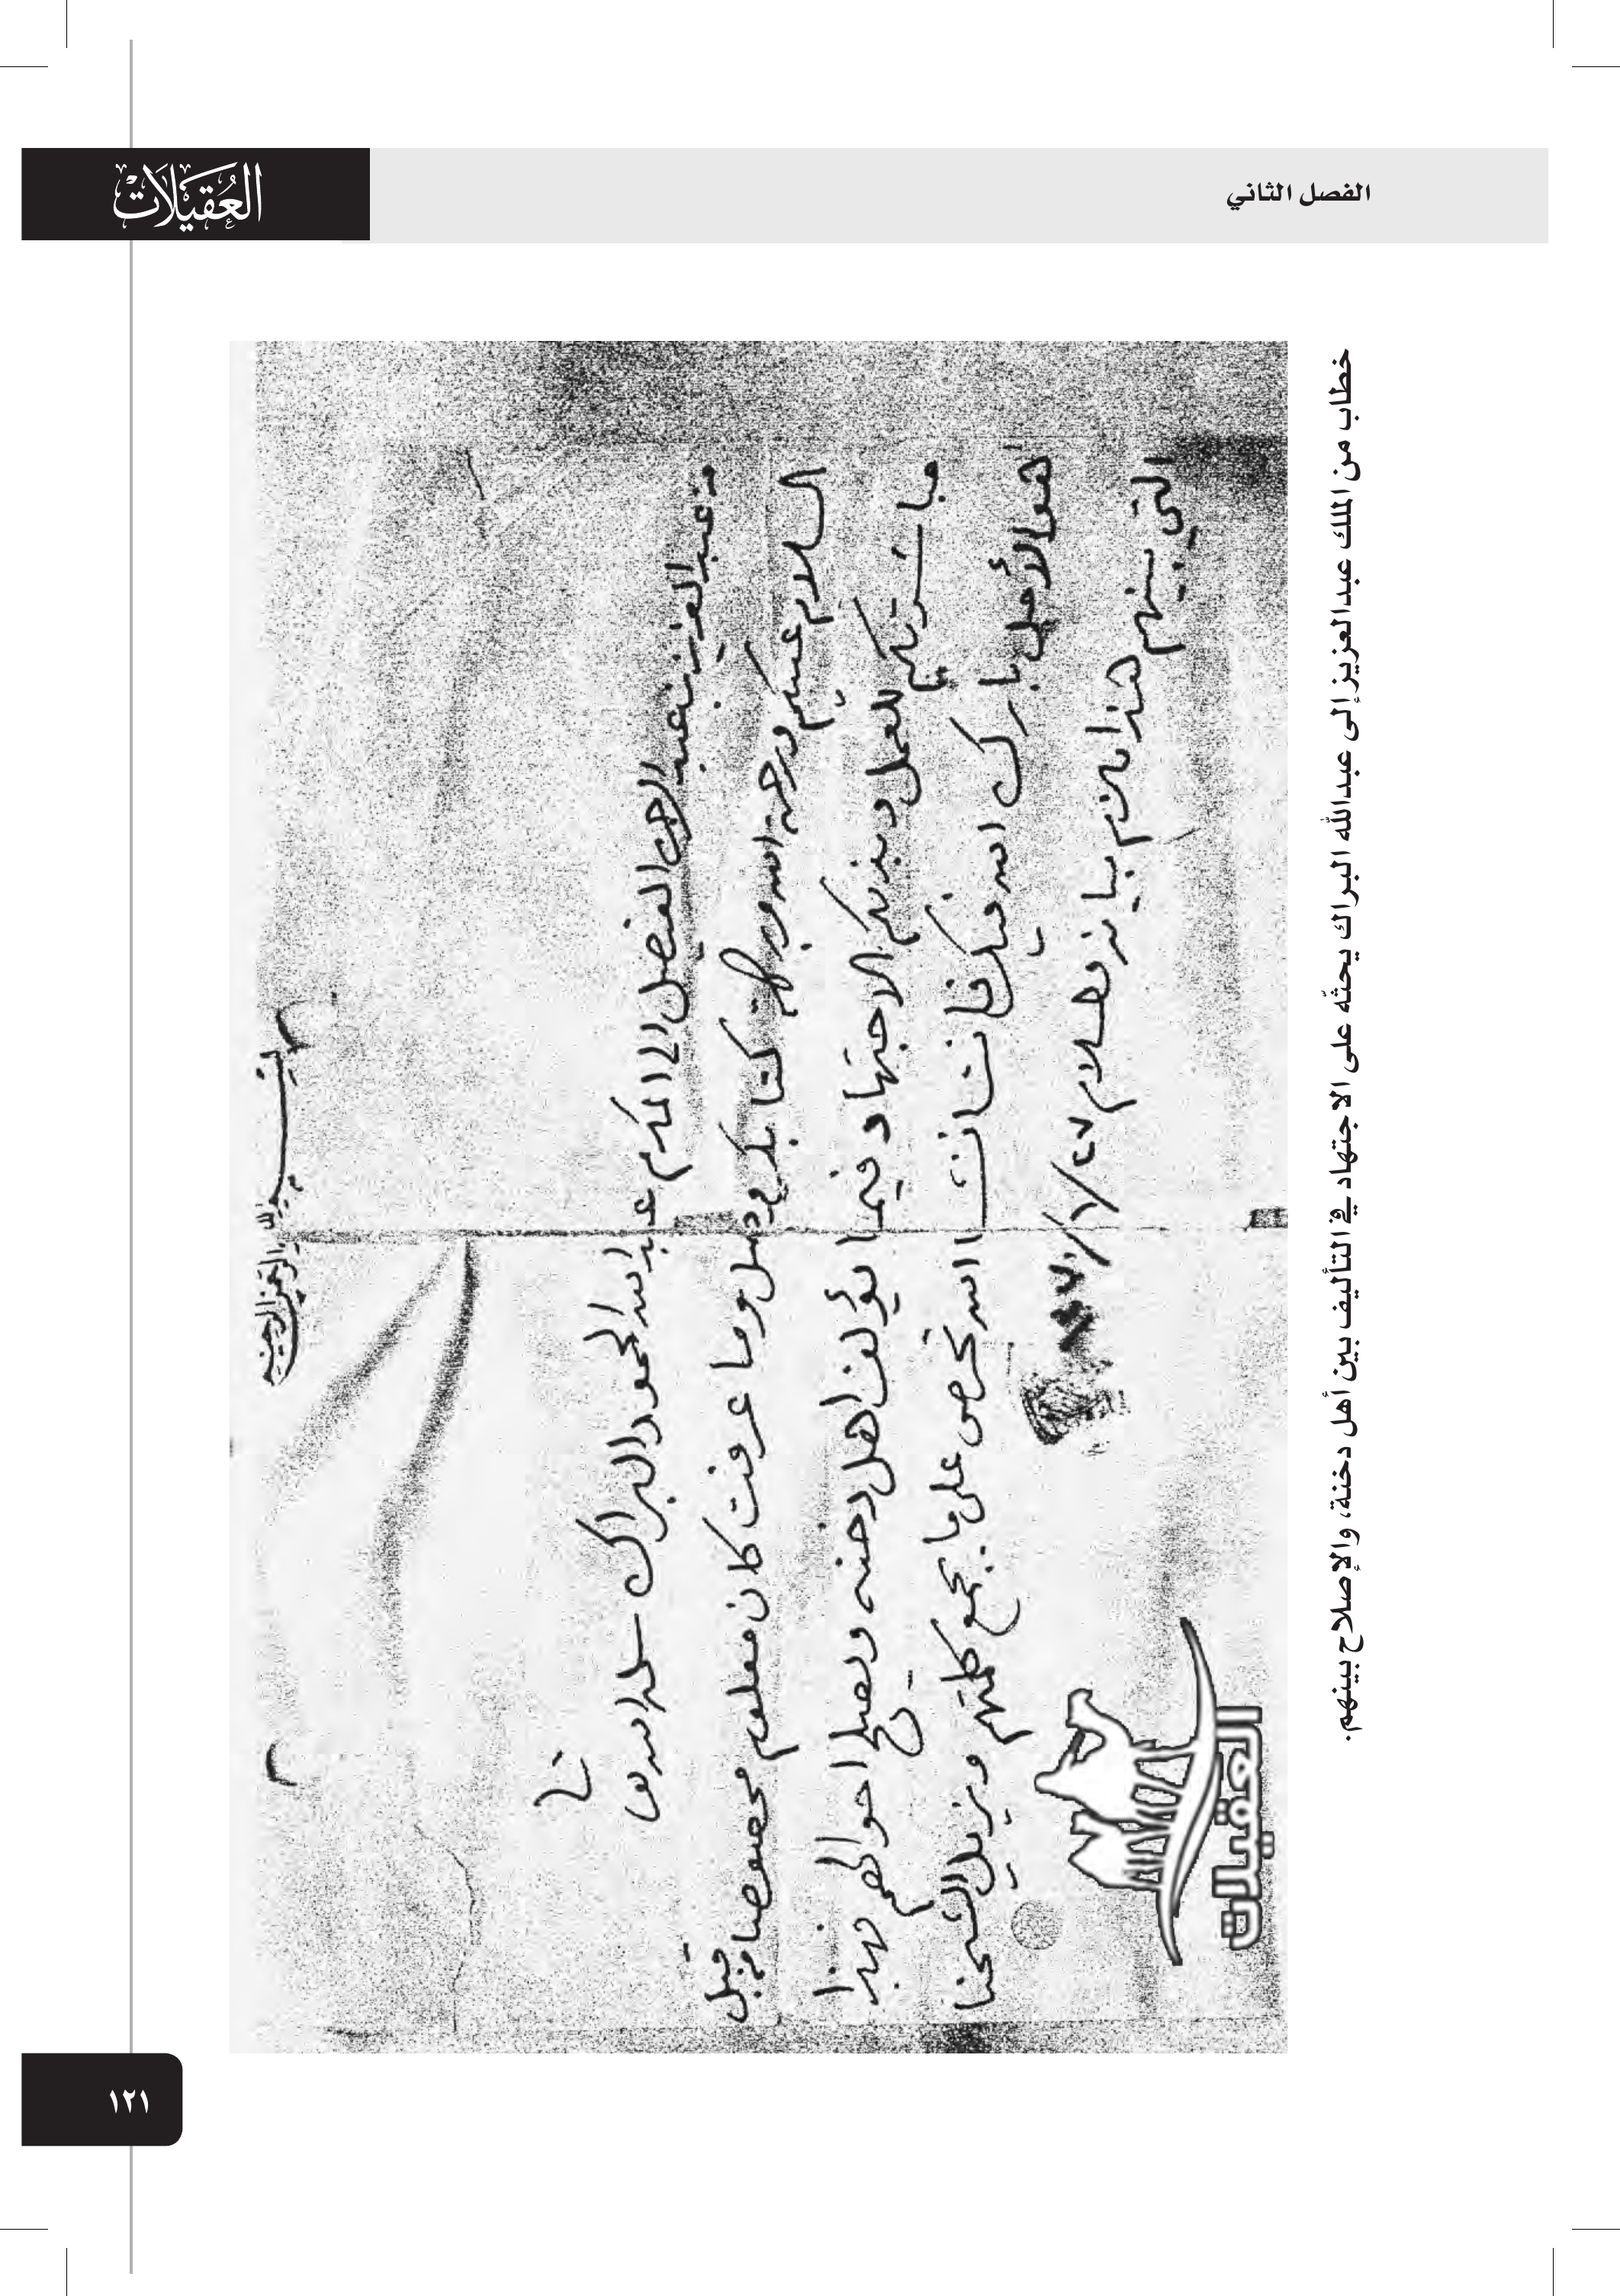 العقيلات
الفصل الثاني
بسم الله الرحمن الرحيم
من عبد العزيز بن عبد الرحمن الفيصل الى المكرم عبد الله المحمود البراك سلمه الله تعالى
السلام عليكم ورحمة الله وبركاته كتابكم وصل وما عرفت كان معلوم مخصوصا من قبل
مباشرتكم للعمل وبذلكم الاجتهاد فيما يؤلف اهل دخنه ويصلح احوالهم فهذا
هو الأمل بارك الله فيكم فانت ان الله تحرص على ما يجمع كلمتهم ويزيل الشحنا
التي بينهم هذا ما لزم بيانه والسلام
العقيلات
خطاب من الملك عبدالعزيز إلى عبدالله البراك يحثّه على الاجتهاد في التأليف بين أهل دخنة، والإصلاح بينهم.
١٢١